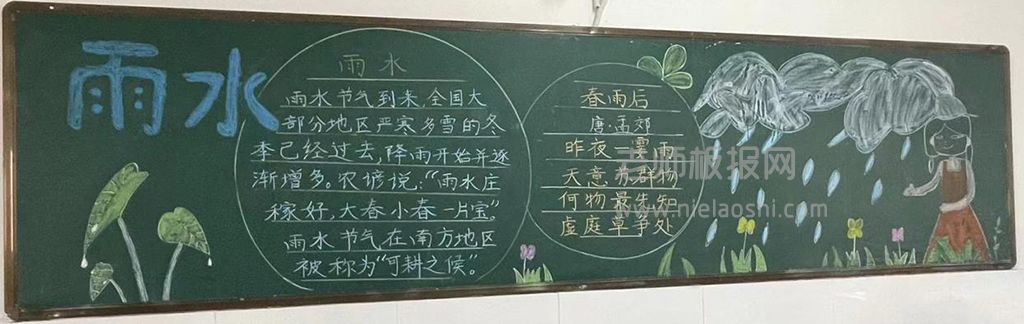 雨水
雨水
雨水节气到来,全国大
部分地区严寒多雪的冬
季已经过去,降雨开始并逐
渐增多。农谚说:“雨水庄
稼好,大春小春一片宝”。
雨水节气在南方地区
被称为“可耕之候”。
春雨后
唐·孟郊
昨夜一霎雨
天意苏群物
何物最先知
虚庭草争处
www.nielaoshi.com